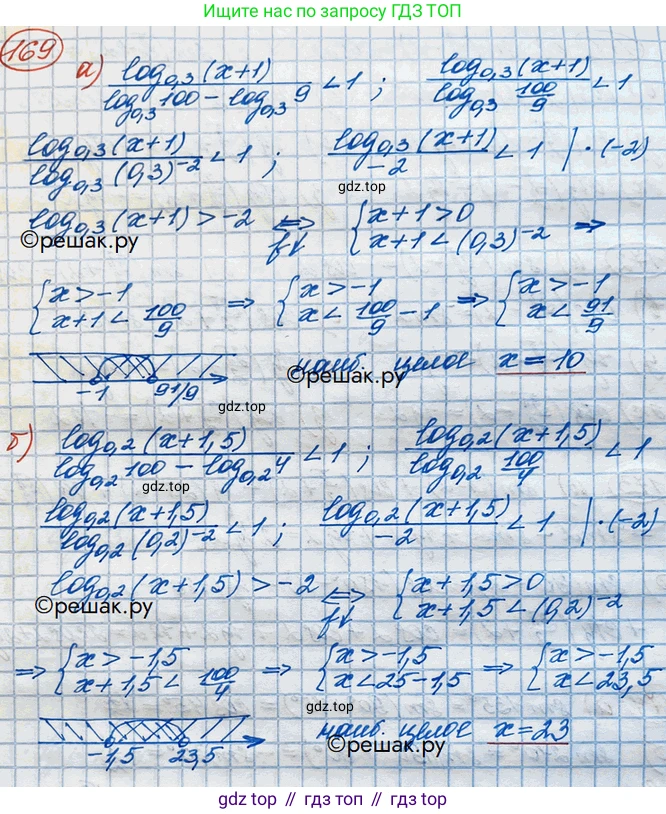 Ищите нас по запросу ГДЗ ТОП
169
а) log₀,₃(x+1) / (log₀,₃100 − log₀,₃9) < 1 ; log₀,₃(x+1) / log₀,₃ 100/9 < 1
log₀,₃(x+1) / log₀,₃(0,3)⁻² < 1 ; log₀,₃(x+1) / −2 < 1 | · (−2)
gdz.top
log₀,₃(x+1) > −2 ⇔ f↓ { x+1>0 x+1<(0,3)⁻² ⇒
©решак.ру
{ x>−1 x+1< 100/9 ⇒ { x>−1 x< 100/9 −1 ⇒ { x>−1 x< 91/9
−1 91/9 наиб. целое x=10
©решак.ру
gdz.top
б) log₀,₂(x+1,5) / (log₀,₂100 − log₀,₂4) < 1 ; log₀,₂(x+1,5) / log₀,₂ 100/4 < 1
gdz.top
log₀,₂(x+1,5) / log₀,₂(0,2)⁻² < 1 ; log₀,₂(x+1,5) / −2 < 1 | · (−2)
log₀,₂(x+1,5) > −2 ⇔ f↓ { x+1,5>0 x+1,5<(0,2)⁻²
©решак.ру
⇒ { x>−1,5 x+1,5< 100/4 ⇒ { x>−1,5 x<25−1,5 ⇒ { x>−1,5 x<23,5
gdz.top
−1,5 23,5 наиб. целое x=23
©решак.ру
gdz.top // гдз топ // gdz.top